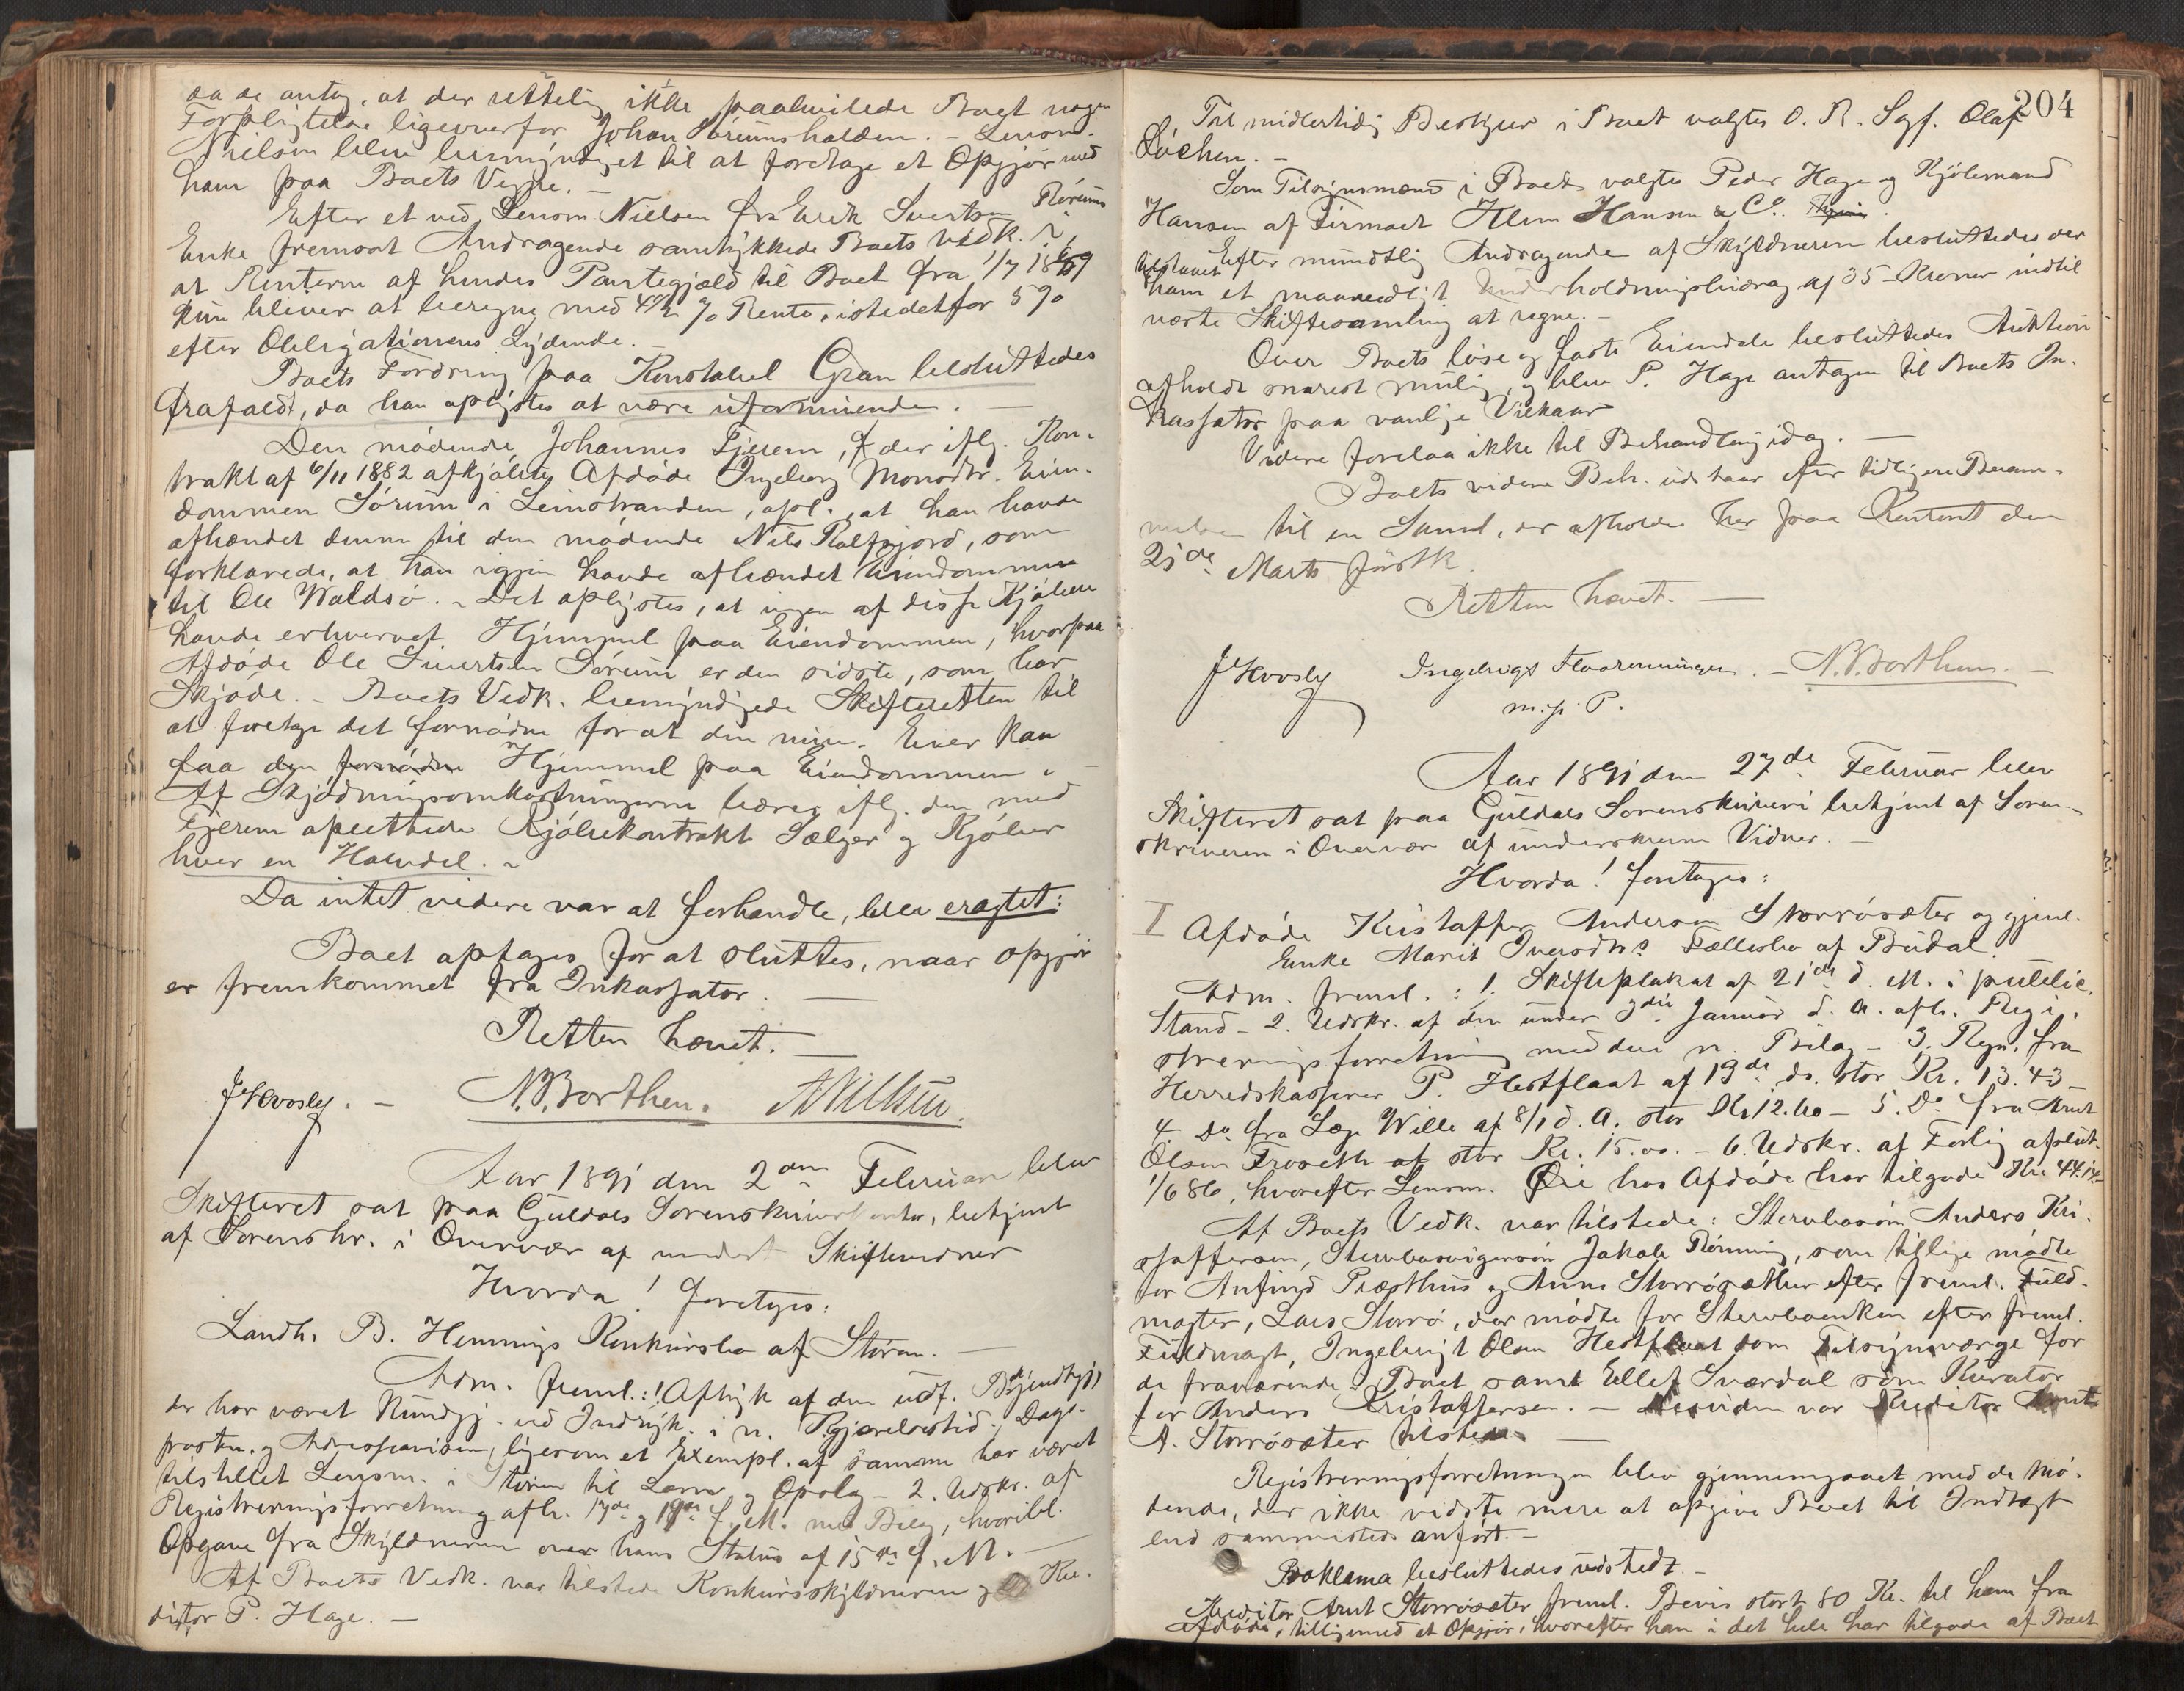 da de antog, at der rettelig ikke paahvilede Boet nogen
Forpligtelse ligeoverfor Johan Sørumshalden. - Lensm.
Nielsen blev bemyndiget til at foretage et Opgjør med
ham paa Boets Vegne. -
Efter et ved Lensm. Nielsen fra Erik Sivertsen Rørums
Enke fremsat Andragende samtykkede Boets Vedk. i,
at Renterne af hendes Pantegjæld til Boet fra 1/7 1889
kun bliver at beregne med 4½ % Rente, istedetfor 5%
efter Obligationens Lydende. -
Boets Fordring paa Konstabel Gran besluttedes
frafaldt, da han oplystes at være uformuende. -
Den mødende Johannes Fjerem, der iflg. Kon-
trakt af 6/11 1882 afkjøbte Afdøde Ingeborg Monsdtr. Eien-
dommen Sørum i Leinstranden, opl., at han havde
afhændet denne til den mødende Nils Rolfsjord, som
forklarede, at han igjen havde afhændet Eiendommen
til Ole Waldsø. - Det oplystes, at ingen af disse Kjøbere
havde erhvervet Hjemmel paa Eiendommen, hvorpaa
Afdøde Ole Sivertsen Sørum er den sidste, som har
Skjøde. - Boets Vedk. bemyndigede Skifteretten til
at foretage det fornødne for at den nuv. Eier kan
faa den fornødne Hjemmel paa Eiendommen. -
Af Skjødningsomkostningerne bærer iflg. den med
Fjerem oprettede Kjøbekontrakt Sælger og Kjøber
hver en Halvdel. -
Da intet videre var at forhandle, blev eragtet:
Boet optages for at sluttes, naar Opgjør
er fremkommet fra Inkassator. -
Retten hævet. -
J Hvosly. - N. P. Borthen. A Nielsen.
Aar 1891 den 2den Februar blev
Skifteret sat paa Guldals Sorenskriverkontor, betjent
af Sorenskr. i Overvær af undert. Skiftevidner
Hvorda! foretoges:
Landh. B. Hemmings Konkursbo af Støren. -
Adm. freml.: 1 Aftryk af den udf. Bekjendtgj.,
der har været kundgj. ved Indryk. i n. Kgjørelsestid., Dags-
posten og Adresseavisen, ligesom et Exempl. af samme har været
tilstillet Lensm. i Støren til Læsn. og Opslag - 2. Udskr. af
Registreringsforretning afh. 17de og 19de f. M. med Bilag, hvoribl.
Opgave fra Skyldneren over hans Status af 15de f. M. -
Af Boets Vedk. var tilstede Konkursskyldneren og Kre-
ditor P. Hage. -
204
Til midlertidig Bestyrer i Boet valgtes O. R. Sgf. Olaf
Løchen. -
Som Tilsynsmænd i Boet valgtes Peder Hage og Kjøbmand
Hansen af Firmaet Klem Hansen & Co.
Efter mundtlig Andragende af Skyldneren besluttedes der
tilstaaet ham et maanedligt Underholdningsbidrag af 35 Kroner indtil
næste Skiftesamling at regne. -
Over Boets løse og faste Eiendele besluttedes Auktion
afholdt snarest mulig, og blev P. Hage antagen til Boets In-
kassator paa vanlige Vilkaar
Videre forelaa ikke til Behandling idag. -
Boets videre Beh. udstaar efter tidligere Beram-
melse til en Saml., der afholdes her paa Kontoret den
21de Marts førstk.
Retten hævet. -
J Hvosly Ingebrigt Flaarønningen. - N. P. Borthen. -
m. p. P.
Aar 1891 den 27de Februar blev
Skifteret sat paa Guldals Sorenskriveri betjent af Soren-
skriveren i Overvær af underskrevne Vidner. -
Hvorda! foretoges:
I Afdøde Kristoffer Andersen Storrøsæter og gjenl.
Enke Marit Iversdtrs Fællesbo af Budal.
Adm. freml.: 1. Skifteplakat af 21de d. M. i public.
Stand - 2. Udskr. af den under 3die Januar d. A. afh. Regi-
streringsforretning med der n. Bilag - 3. Regn. fra
Herredskasserer P. Hestflaat af 13de ds. stor Kr. 13.43 -
4. Do fra Læge Wille af 8/1 d. A. stor Kr. 12.60 - 5. Do fra Arnt
Olsen Froseth af stor Kr. 15.00. - 6. Udskr. af Forlig afslut.
1/6 86, hvorefter Lensm. Øie hos Afdøde har tilgode Kr. 44.14.
Af Boets Vedk. var tilstede: Stervbosøn Anders Kri-
stoffersen, Stervbosvigersøn Jakob Rønning, som tillige mødte
for Anfind Præsthus og Anne Storrøsæther efter freml. Fuld-
magter, Lars Storrø, der mødte for Stervboenken efter freml.
Fuldmagt, Ingebrigt Olsen Hestflaat som Tilsynsværge for
de fraværende i Boet samt Ellef Sværdal som Kurator
for Anders Kristoffersen. - Desuden var Kreditor Arnt
A. Storrøsæter tilstede. -
Registreringsforretningen blev gjennemgaaet med de mø-
dende, der ikke vidste mere at opgive Boet til Indtægt
end sammesteds anført. -
Proklama besluttedes udstedt. -
Kreditor Arnt Storrøsæter freml. Bevis stort 80 Kr. til ham fra
Afdøde, tilligemed et Opgjør, hvorefter han i det hele har tilgode af Boet